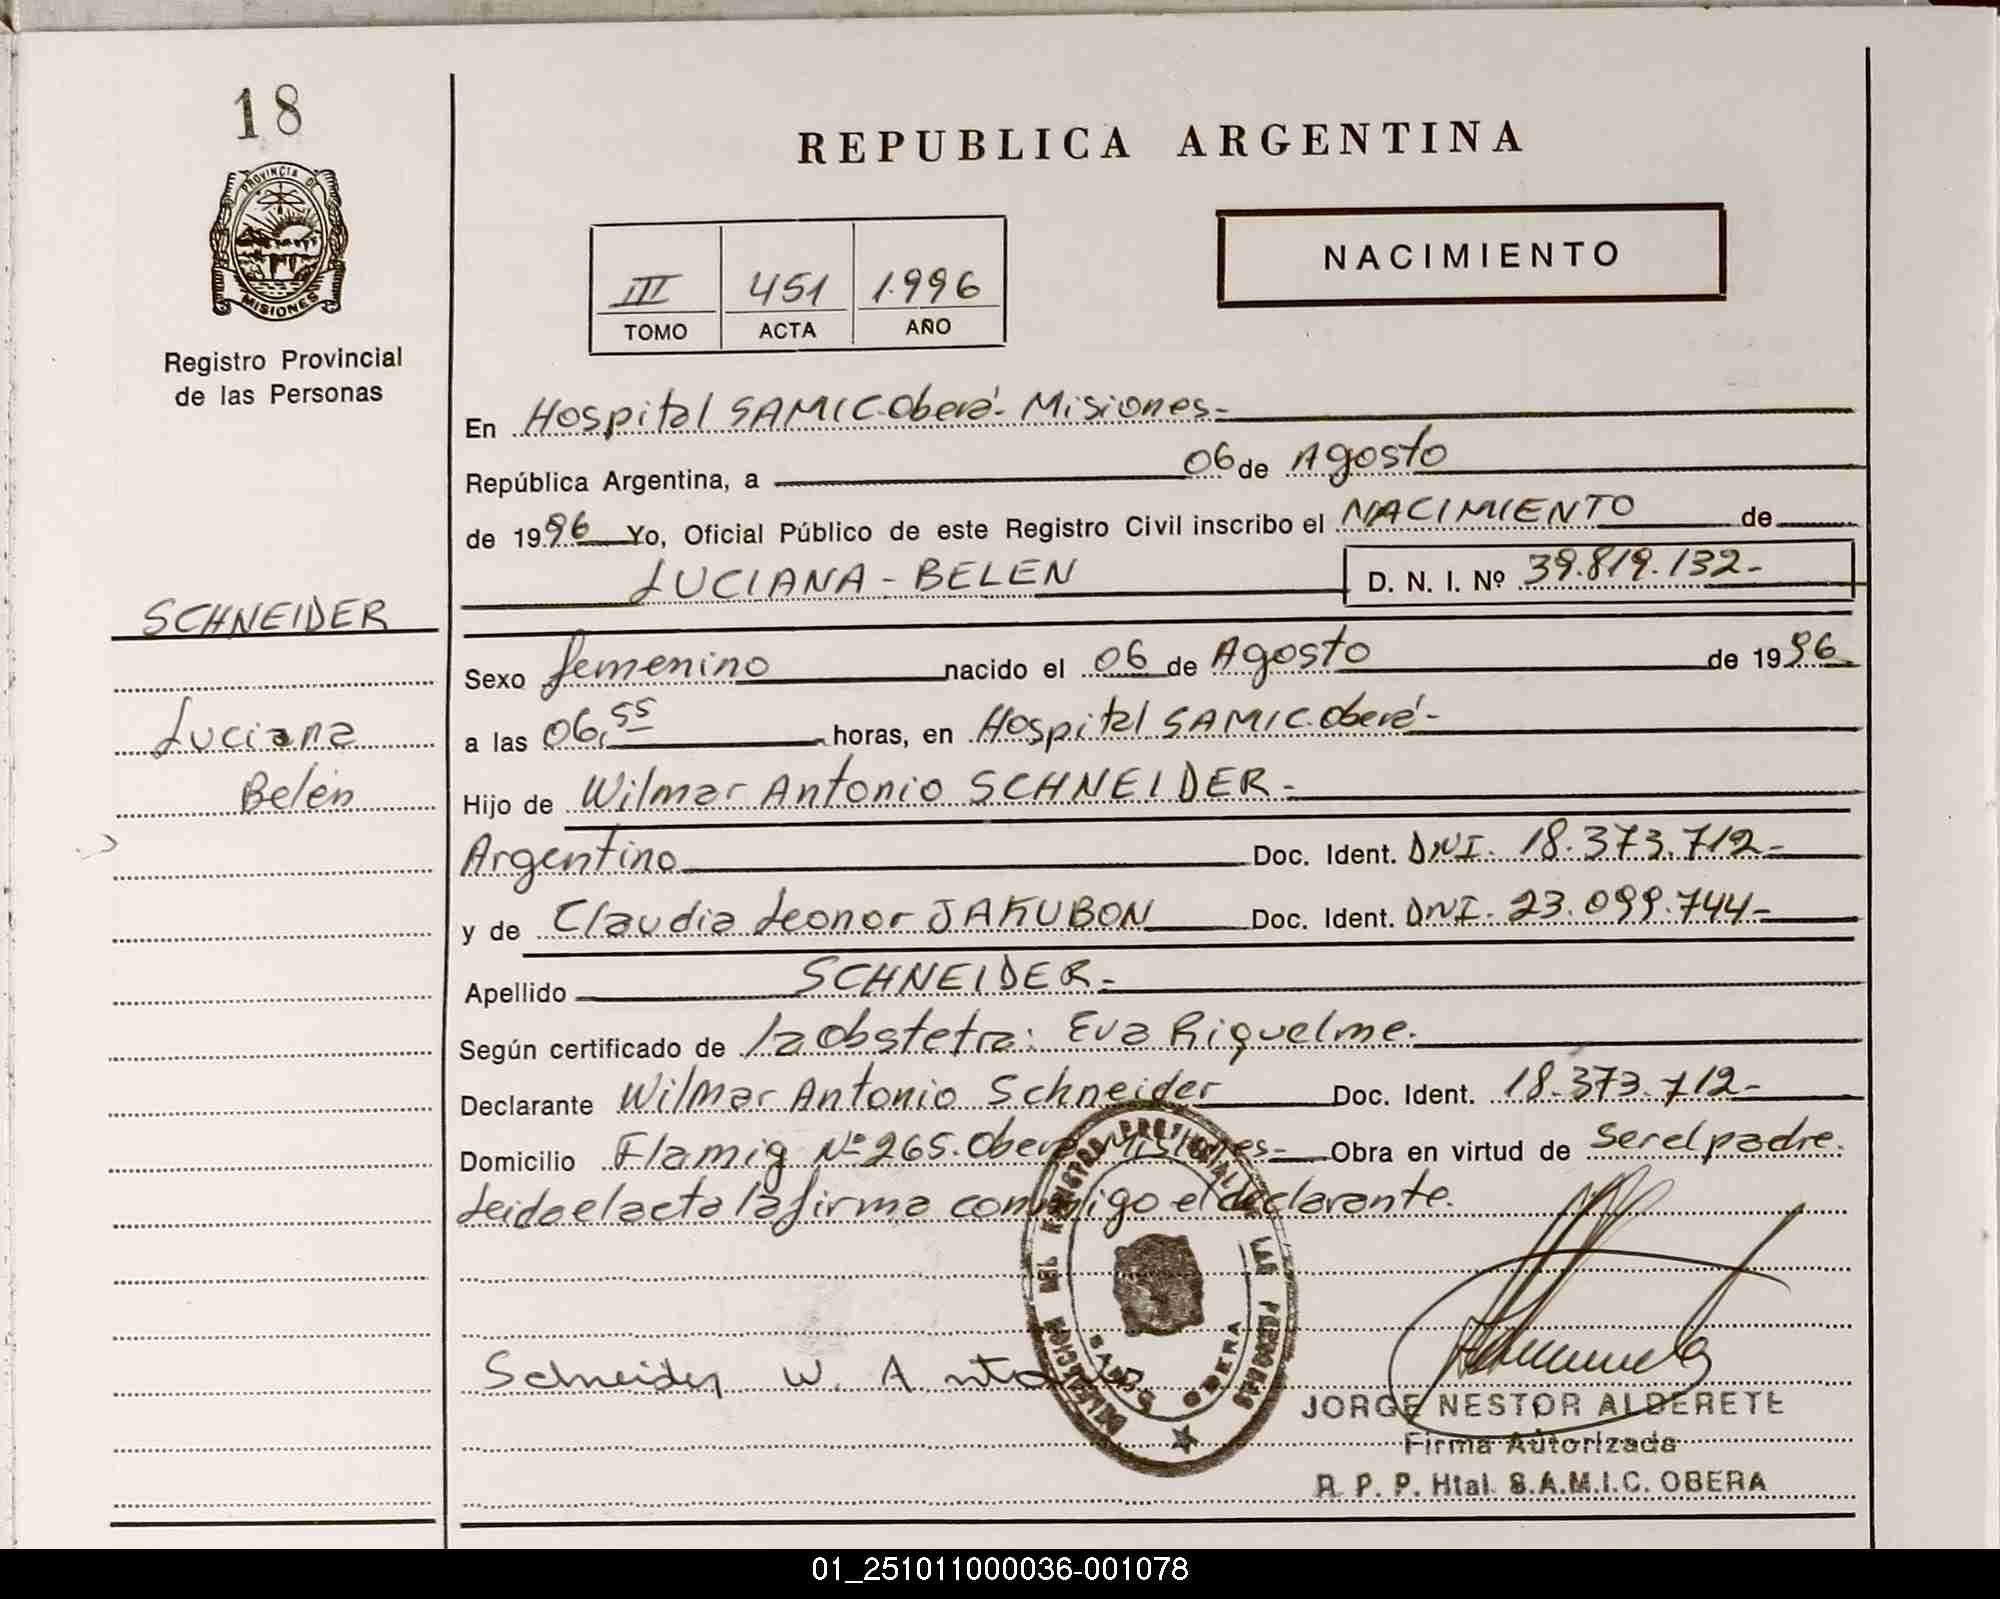 18
PROVINCIA DE
MISIONES
Registro Provincial
de las Personas
SCHNEIDER
Luciana
Belén
REPUBLICA ARGENTINA
NACIMIENTO
III 451 1.996
TOMO ACTA AÑO
En Hospital SAMIC-Oberá- Misiones-
República Argentina, a 06 de Agosto
de 1996 Yo, Oficial Público de este Registro Civil inscribo el NACIMIENTO de
LUCIANA - BELEN D. N. I. Nº 39.819.132-
Sexo femenino nacido el 06 de Agosto de 1996
a las 06,55 horas, en Hospital SAMIC.Oberá-
Hijo de Wilmar Antonio SCHNEIDER-
Argentino Doc. Ident. DNI. 18.373.712-
y de Claudia Leonor JAKUBON Doc. Ident. DNI. 23.099.744-
Apellido SCHNEIDER-
Según certificado de la obstetra: Eva Riquelme.
Declarante Wilmar Antonio Schneider Doc. Ident. 18.373.712-
Domicilio Flamig Nº 265. Oberá Misiones- Obra en virtud de ser el padre.
Leida el acta la firma conmigo el declarante.
DELEGACION DEL REGISTRO PROVINCIAL DE LAS PERSONAS
OBERA
Schneider W. Antonio
JORGE NESTOR ALDERETE
Firma Autorizada
R. P. P. Htal. S.A.M.I.C. OBERA
01_251011000036-001078